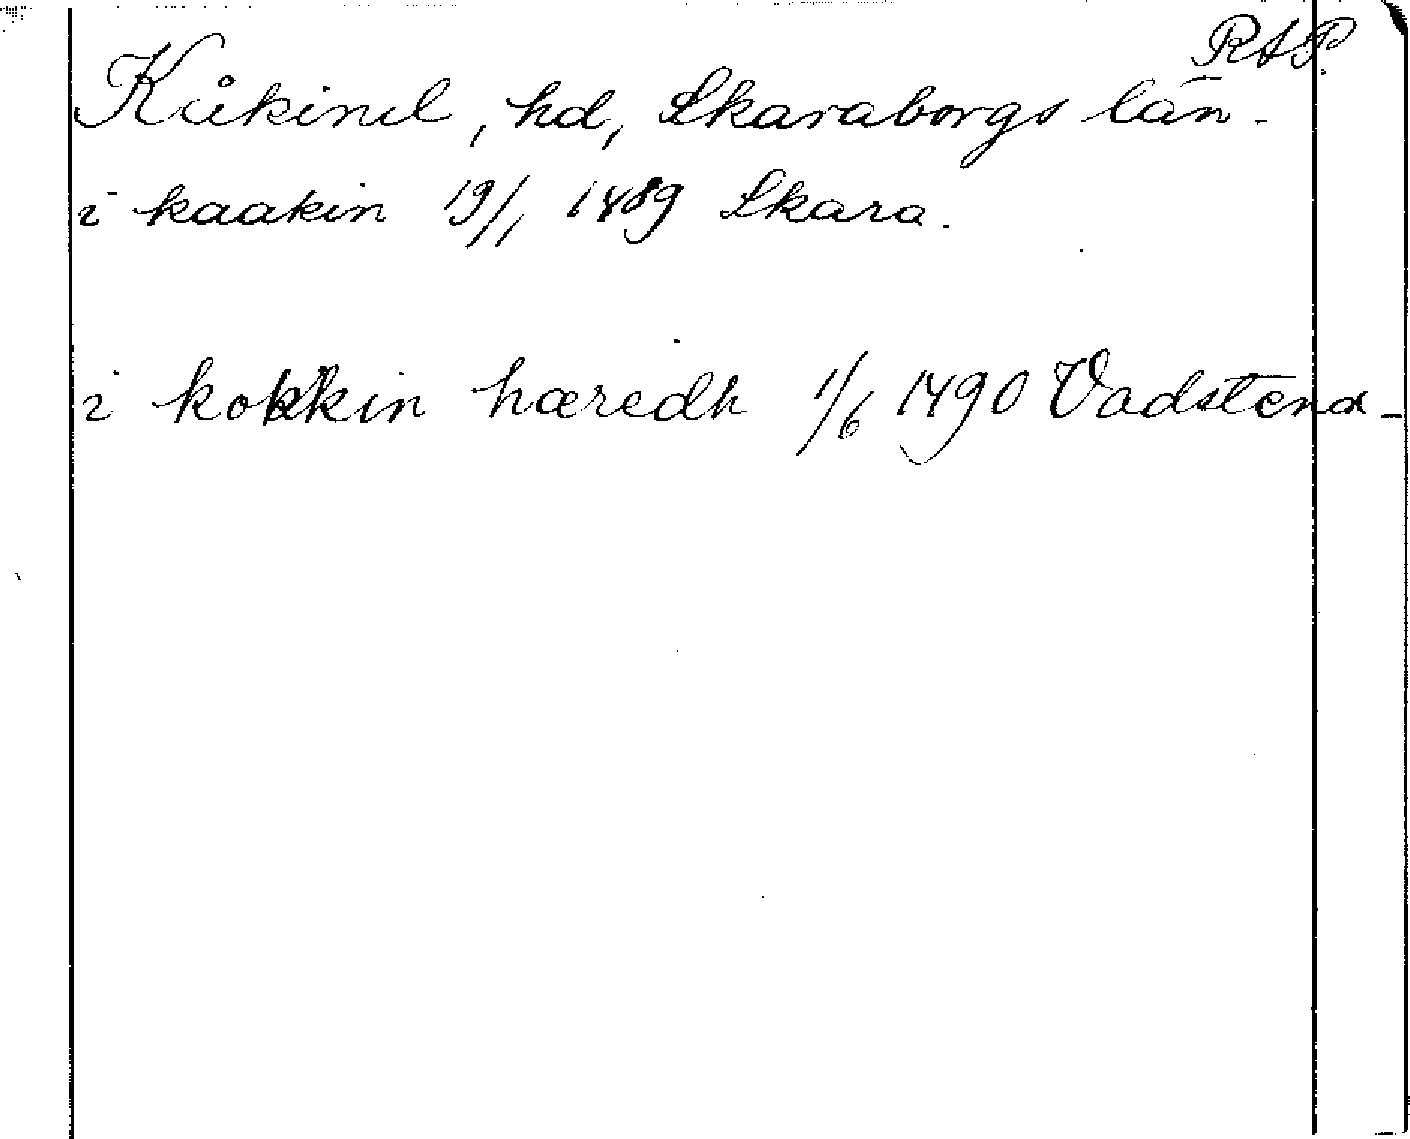 RAP.
Kåkind, hd, Skaraborgs län.
i kaakin 19/1 1489 Skara.
i kokkin hæredh 1/6 1490 Vadstena.